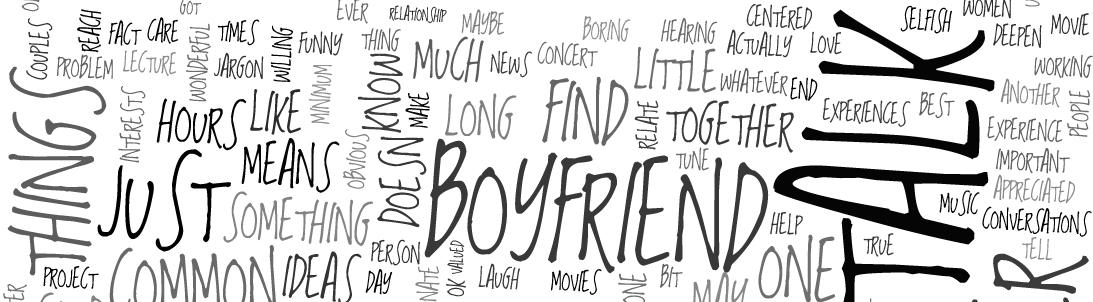 GOT
EVER
RELATIONSHIP
MAYBE
CENTERED
SELFISH
WOMEN
COUPLES
REACH
FACT
CARE
WONDERFUL
TIMES
WILLING
FUNNY
THING
BORING
HEARING
ACTUALLY
LOVE
DEEPEN
MOVIE
PROBLEM
LECTURE
JARGON
MINIMUM
KNOW
MUCH
NEWS
CONCERT
LITTLE
WHATEVER
END
TALK
WORKING
THINGS
INTERESTS
HOURS
LIKE
OBVIOUS
DOESN
MAKE
LONG
FIND
RELATE
TOGETHER
EXPERIENCES
BEST
ANOTHER
PEOPLE
EXPERIENCE
JUST
MEANS
BOYFRIEND
TUNE
IMPORTANT
SOMETHING
APPRECIATED
MUSIC
CONVERSATIONS
HELP
TRUE
TELL
PROJECT
COMMON
IDEAS
PERSON
DAY
OK
VALUED
LAUGH
MOVIES
BIT
MAY
ONE